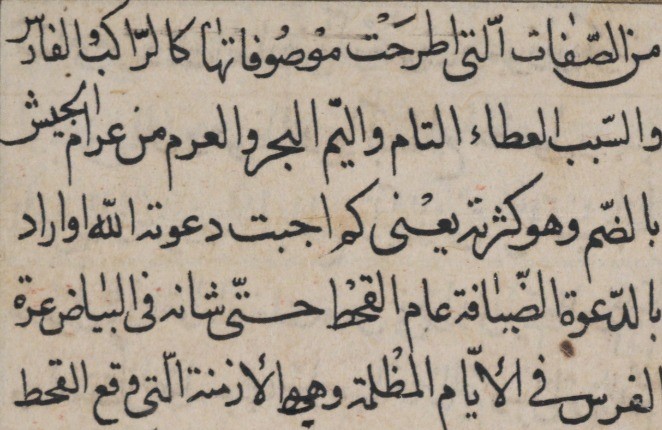 من الصّفات الّتى اطرحَت موْصُوفاتها كالرّاكب والفارس
والسّبب العطاء التام واليّم البحر والعرم من عرام الجيش
بالضّم وهو كثرته يعْنى كم اجبت دعوته اللّه او اراد
بالدّعوة الضّيافة عام القحْط حتّى شانه فى البيَاض غرة
الفرس فى الايّام المظْلمة وهى الازمنة الّتى وقع القحط